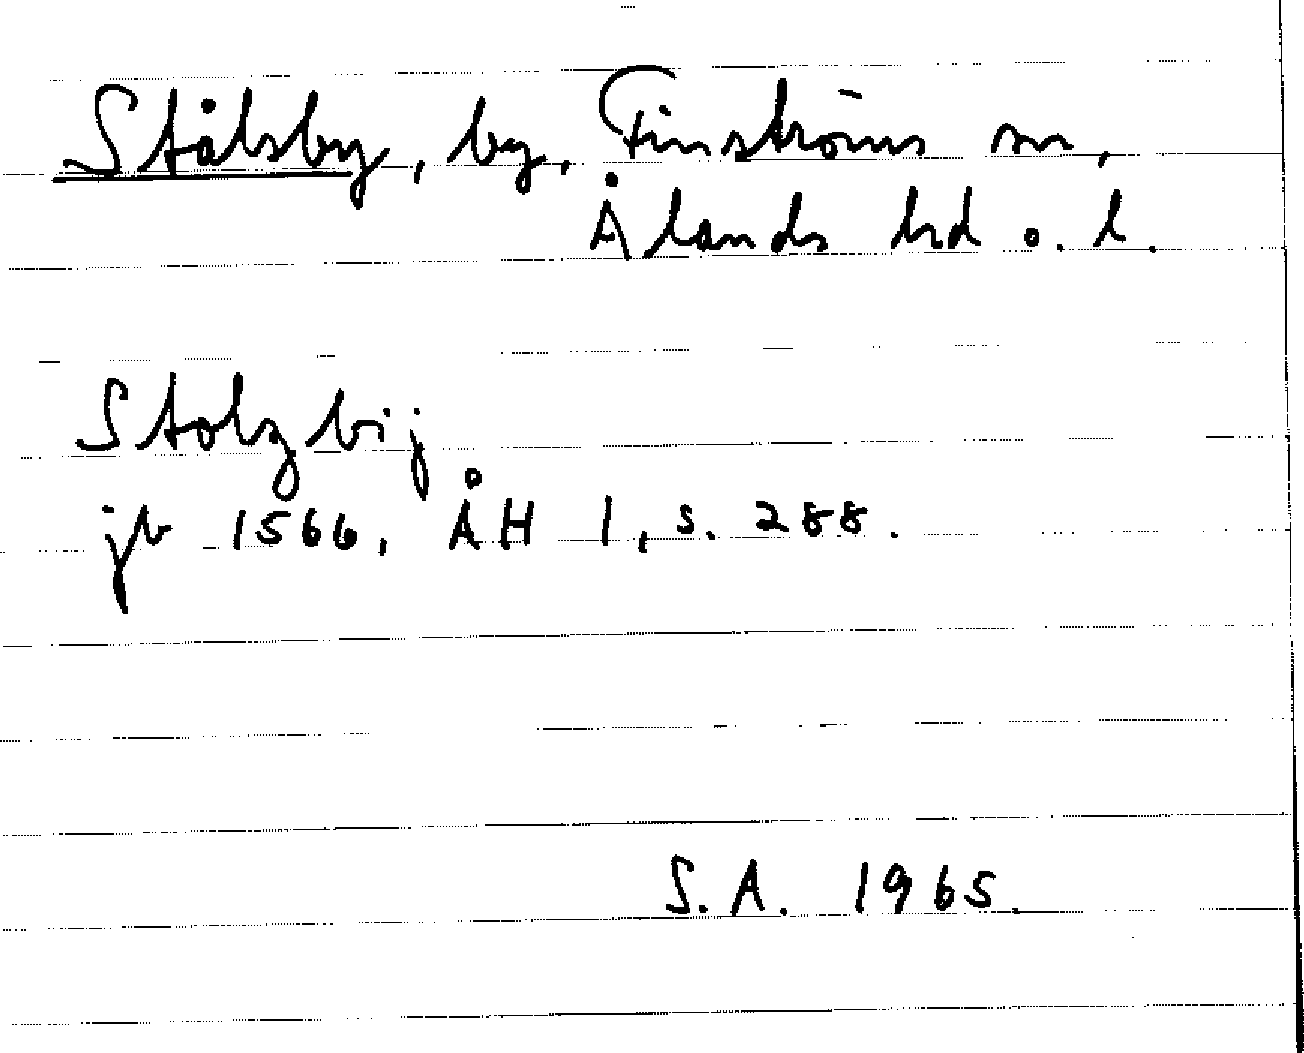 Stålsby, by, Finströms sn,
Ålands hd o. l.
Stolzbij
jb 1566, ÅH 1, s. 288.
S.A. 1965.